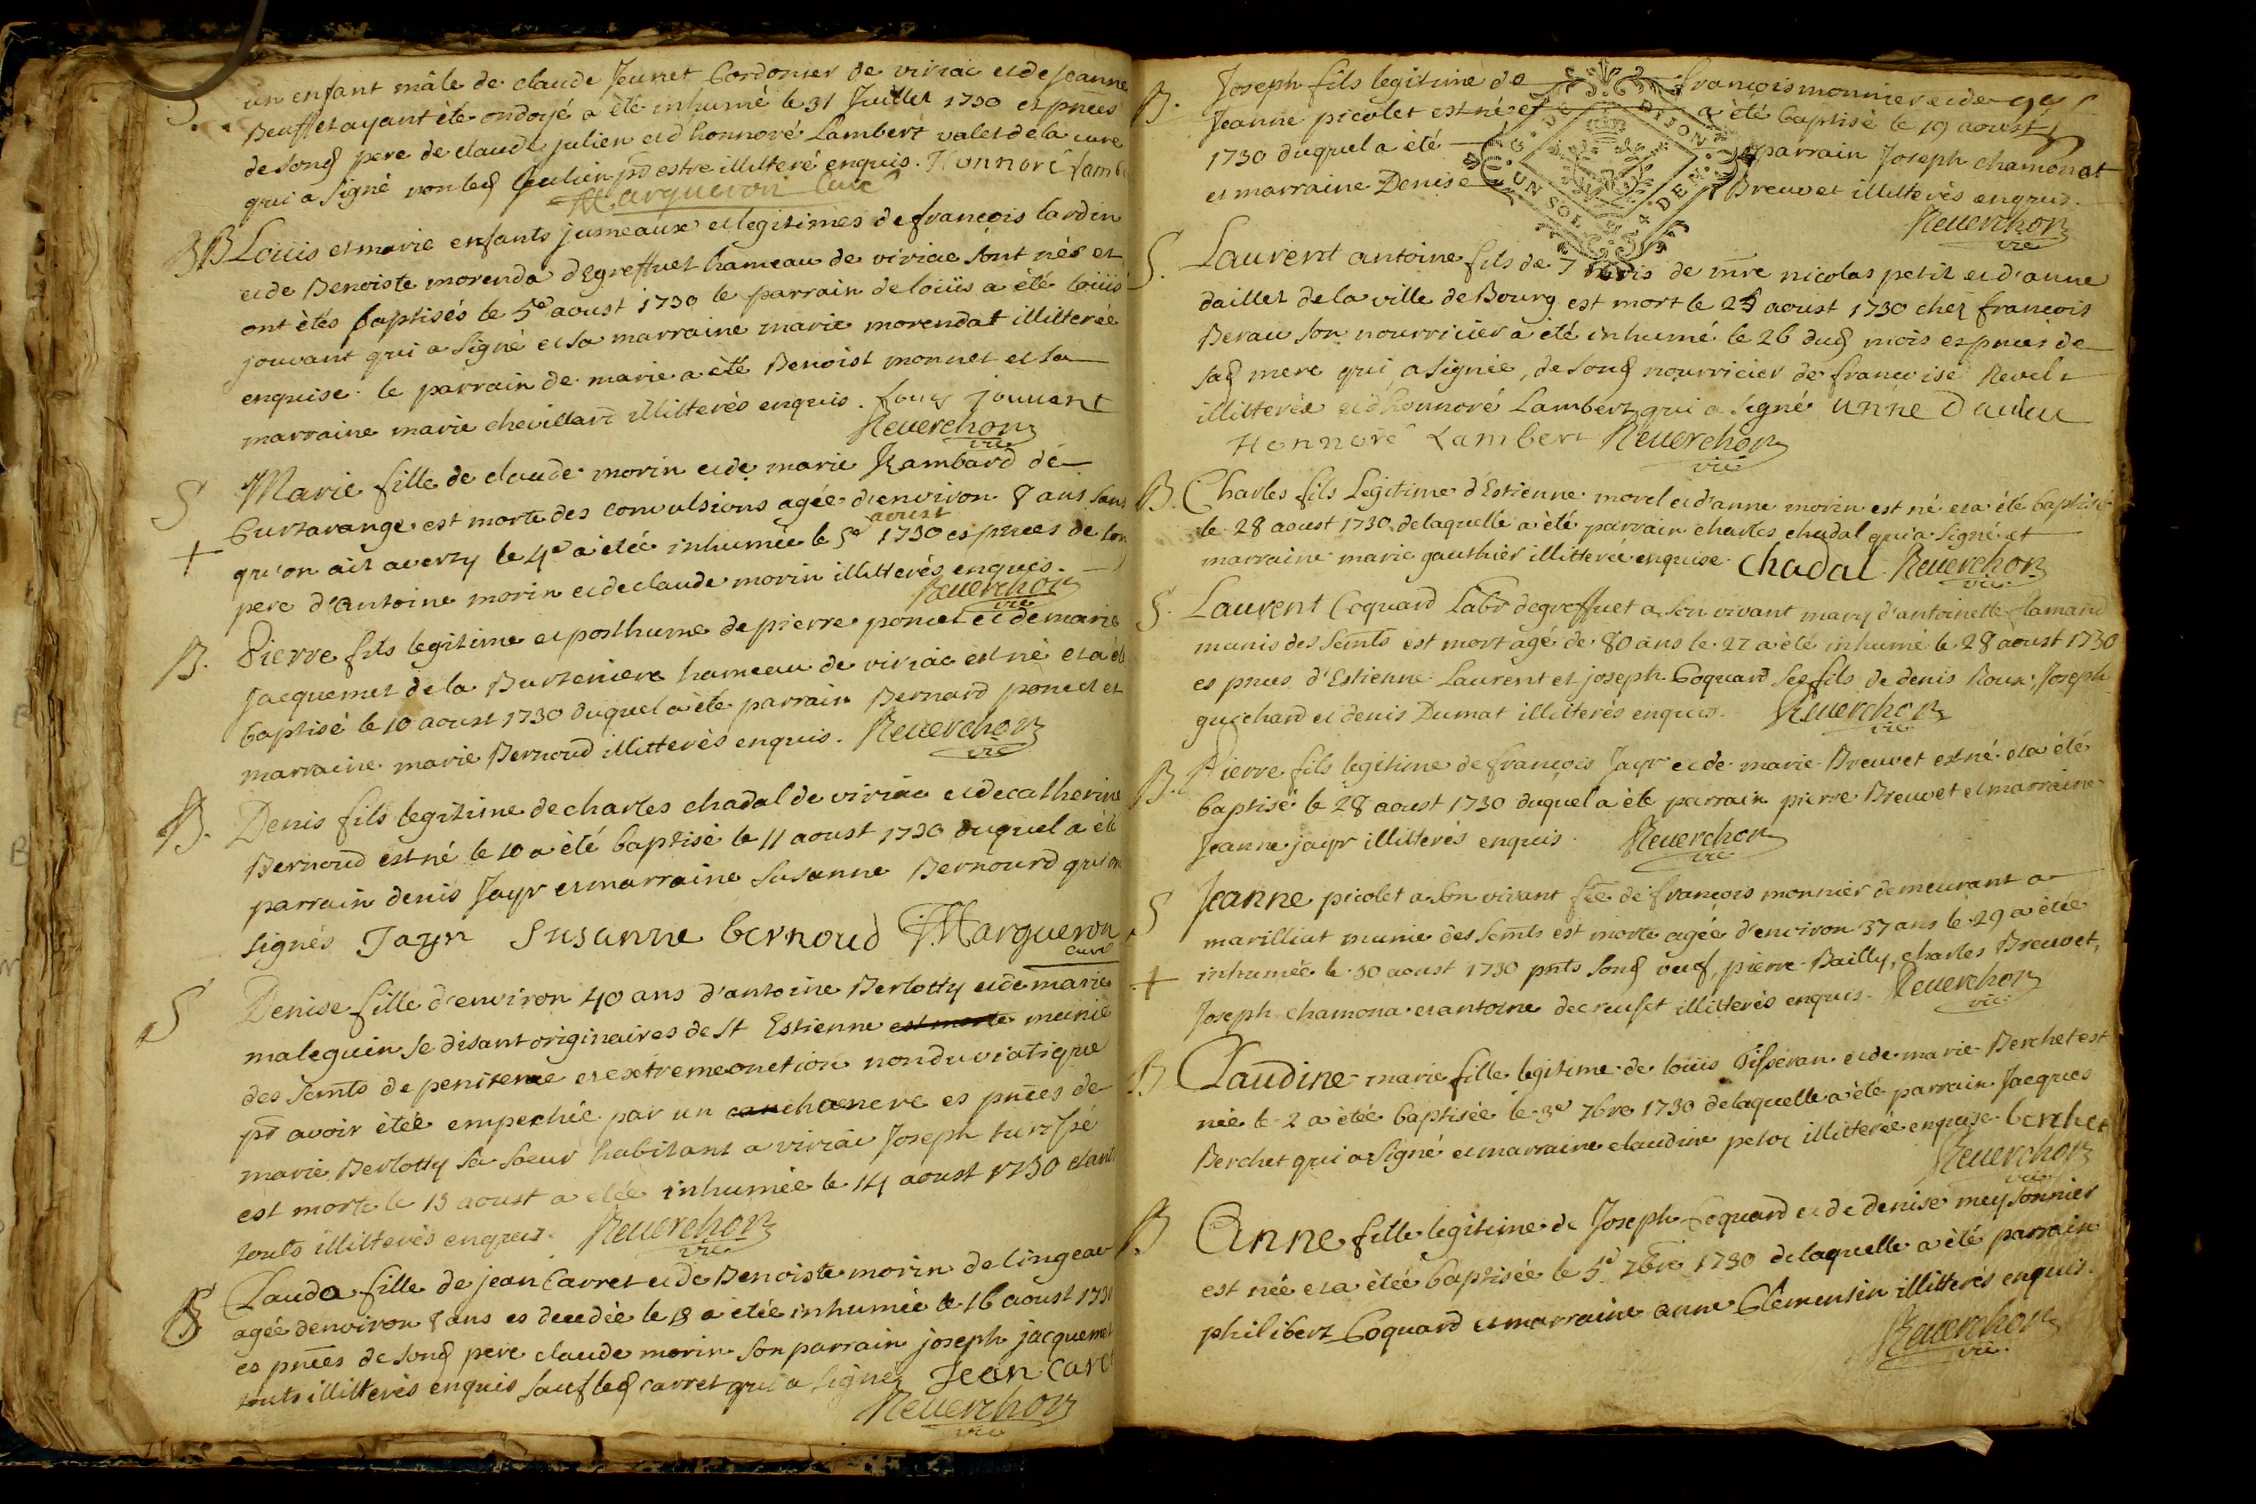 S. un enfant mâle de claude Jeunet Cordonier de viriac et de Jeanne
Beuff et ayant été ondoyé a été inhumé le 31 Juillet 1730 es pnces
de sond pere de claude julien et d'honnoré Lambert valet de la cure
qui a signé non led Jeulien pr estre illitteré enquis. Honnoré Lamb
Marqueron curé
BB Loüis et marie enfants jumeaux et legitimes de françois lardin
et de Benoiste morenda d'Egreffuet hameau de viriac sont nés et
ont étés baptisés le 5e aoust 1730 le parrain de loüis a été loüis
jouvant qui a signé et sa marraine marie morendat illitterée
enquise. le parrain de marie a été Benoist monnet et sa
marraine marie chevillard illitterés enquis. Louy jouvent
Reuerchon
vic
S Marie fille de claude morin et de marie Rambard de
Curtarange est morte des convulsions agée d'environ 8 ans sans
aoust
+ qu'on ait averty le 4e a étée inhumée le 5e 1730 es pnces de son
pere d'antoine morin et de claude morin illitterés enquis.
Reuerchon
vic
B. Pierre fils legitime et posthume de pierre poncet et de marie
Jacquemet de la Burteniere hameau de viriac est né et a été
baptisé le 10 aoust 1730 duquel a été parrain Bernard poncet et
marraine marie Bernoud illitterés enquis. Reuerchon
vic
B. Denis fils legitime de charles chadal de viriac et de catherine
Bernoud est né le 10 a été baptisé le 11 aoust 1730 duquel a été
parrain denis Jayr et marraine susanne Bernourd qui on
signés Jayr Susanne bernoud Marqueron
curé
S Denise fille d'environ 40 ans d'antoine Berlotty et de marie
maleguin se disant originaires de St Estienne est morte munie
des semts de penitence et extremeonction non du viatique
pr avoir étée empechée par un can chancre es pnces de
marie Berlotty sa soeur habitant a viriac Joseph
est morte le 13 aoust a étée inhumée le 14 aoust 1730 etant
touts illitterés enquis. Reuerchon
vic
S Clauda fille de jean Carret et de Benoiste morin de lingeat
agée denviron 8 ans es decedée le 15 a étée inhumée le 16 aoust 1730
es pnces de sond pere claude morin son parrain joseph jacquemet
touts illitterés enquis sauf led carret qui a signé Jean Caret
Reuerchon
vic
B. Joseph fils legitime de françois monnier et de
Jeanne picolet est né et a été baptisé le 19 aoust
1730 duquel a été parrain Joseph chamonat
et marraine Denise Breuvet illitterés enquis.
G. DE DIJON
UN SOL 4 DEN.
Reuerchon
vic
S. Laurent antoine fils de 7 mois de mre nicolas petit et d'anne
daillet de la ville de Bourg est mort le 25 aoust 1730 chez françois
Berau son nourricier a été inhumé le 26 dud mois es pnces de
sad mere qui a signée, de sond nourricier de françoise Revel
illitterée et d'honnoré Lambert qui a signé anne Dailliet
Honnoré Lambert Reuerchon
vic
B. Charles fils Legitime d'Estienne morel et d'anne morin est né et a été baptisé
le 28 aoust 1730 delaquelle a été parrain charles chadal qui a signé et
marraine marie gauthier illitterée enquise. Chadal Reuerchon
vic
S. Laurent Coquard Labr degreffuet a son vivant mary d'antoinette flamand
munis des semts est mort agé de 80 ans le 27 a été inhumé le 28 aoust 1730
es pnces d'Estienne Laurent et joseph Coquard ses fils de denis Roux, Joseph
guichard et denis Dumat illitterés enquis. Reuerchon
vic
B. Pierre fils legitime de françois Jayr et de marie Breuvet est né et a été
baptisé le 28 aoust 1730 duquel a été parrain pierre Breuvet et marraine
Jeanne jayr illitterés enquis. Reuerchon
vic
S Jeanne picolet a son vivant fēe de françois monnier demeurant a
marilliat munie des semts est morte agée d'environ 37 ans le 29 a étée
+ inhumée le 30 aoust 1730 pnts sond veuf, pierre Bailly, charles Breuvet,
Joseph chamona et antoine decreuset illitterés enquis. Reuerchon
vic
B Claudine marie fille legitime de loüis Pisseran et de marie Berchet est
née le 2 a étée baptisée le 3e 7bre 1730 delaquelle a été parrain Jacques
Berchet qui a signé et marraine claudine peloc illitterée enquise. berchet
Reuerchon
vic
B Anne fille legitime de Joseph Coquard et de denise meysonnier
est née et a étée baptisée le 5e 7bre 1730 delaquelle a été parrain
philibert Coquard et marraine anne Clemensin illitterés enquis.
Reuerchon
vic.